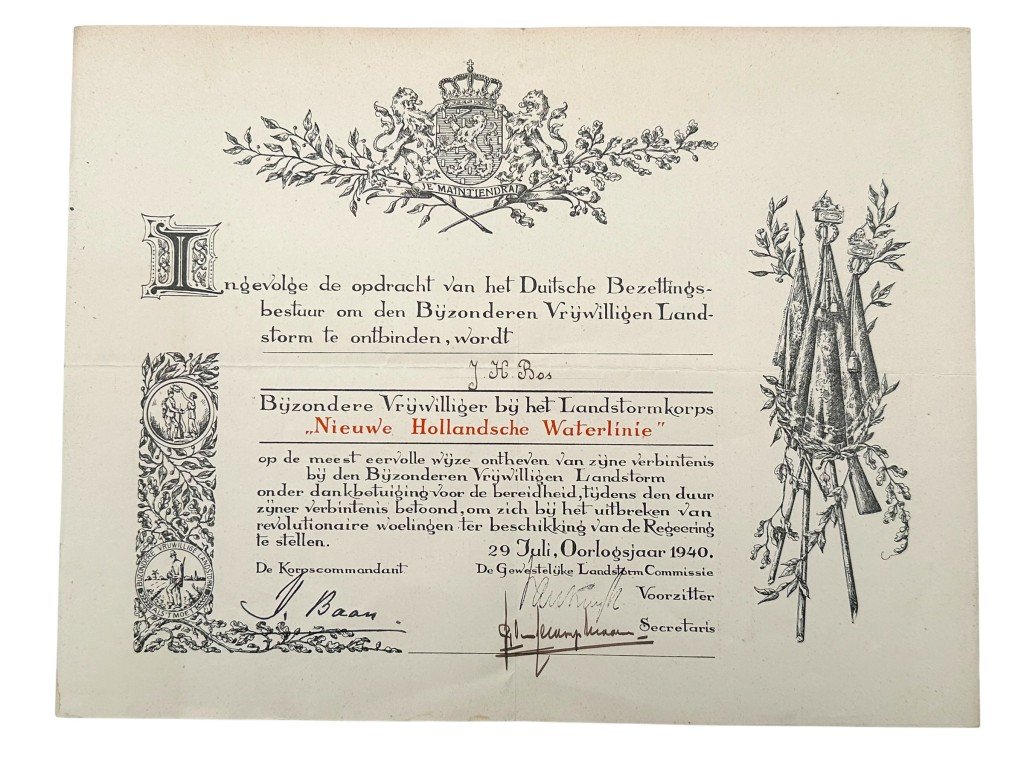 JE MAINTIENDRAI
Ingevolge de opdracht van het Duitsche Bezettings-
bestuur om den Bijzonderen Vrijwilligen Land-
storm te ontbinden, wordt
J. H. Bos
Bijzondere Vrijwilliger bij het Landstormkorps
„Nieuwe Hollandsche Waterlinie"
op de meest eervolle wijze ontheven van zijne verbintenis
bij den Bijzonderen Vrijwilligen Landstorm
onder dankbetuiging voor de bereidheid, tijdens den duur
zijner verbintenis betoond, om zich bij het uitbreken van
revolutionaire woelingen ter beschikking van de Regeering
te stellen.
29 Juli, Oorlogsjaar 1940.
De Korpscommandant
De Gewestelijke Landstorm Commissie
Voorzitter
Baan
Secretaris
BIJZONDERE VRIJWILLIGE LANDSTORM